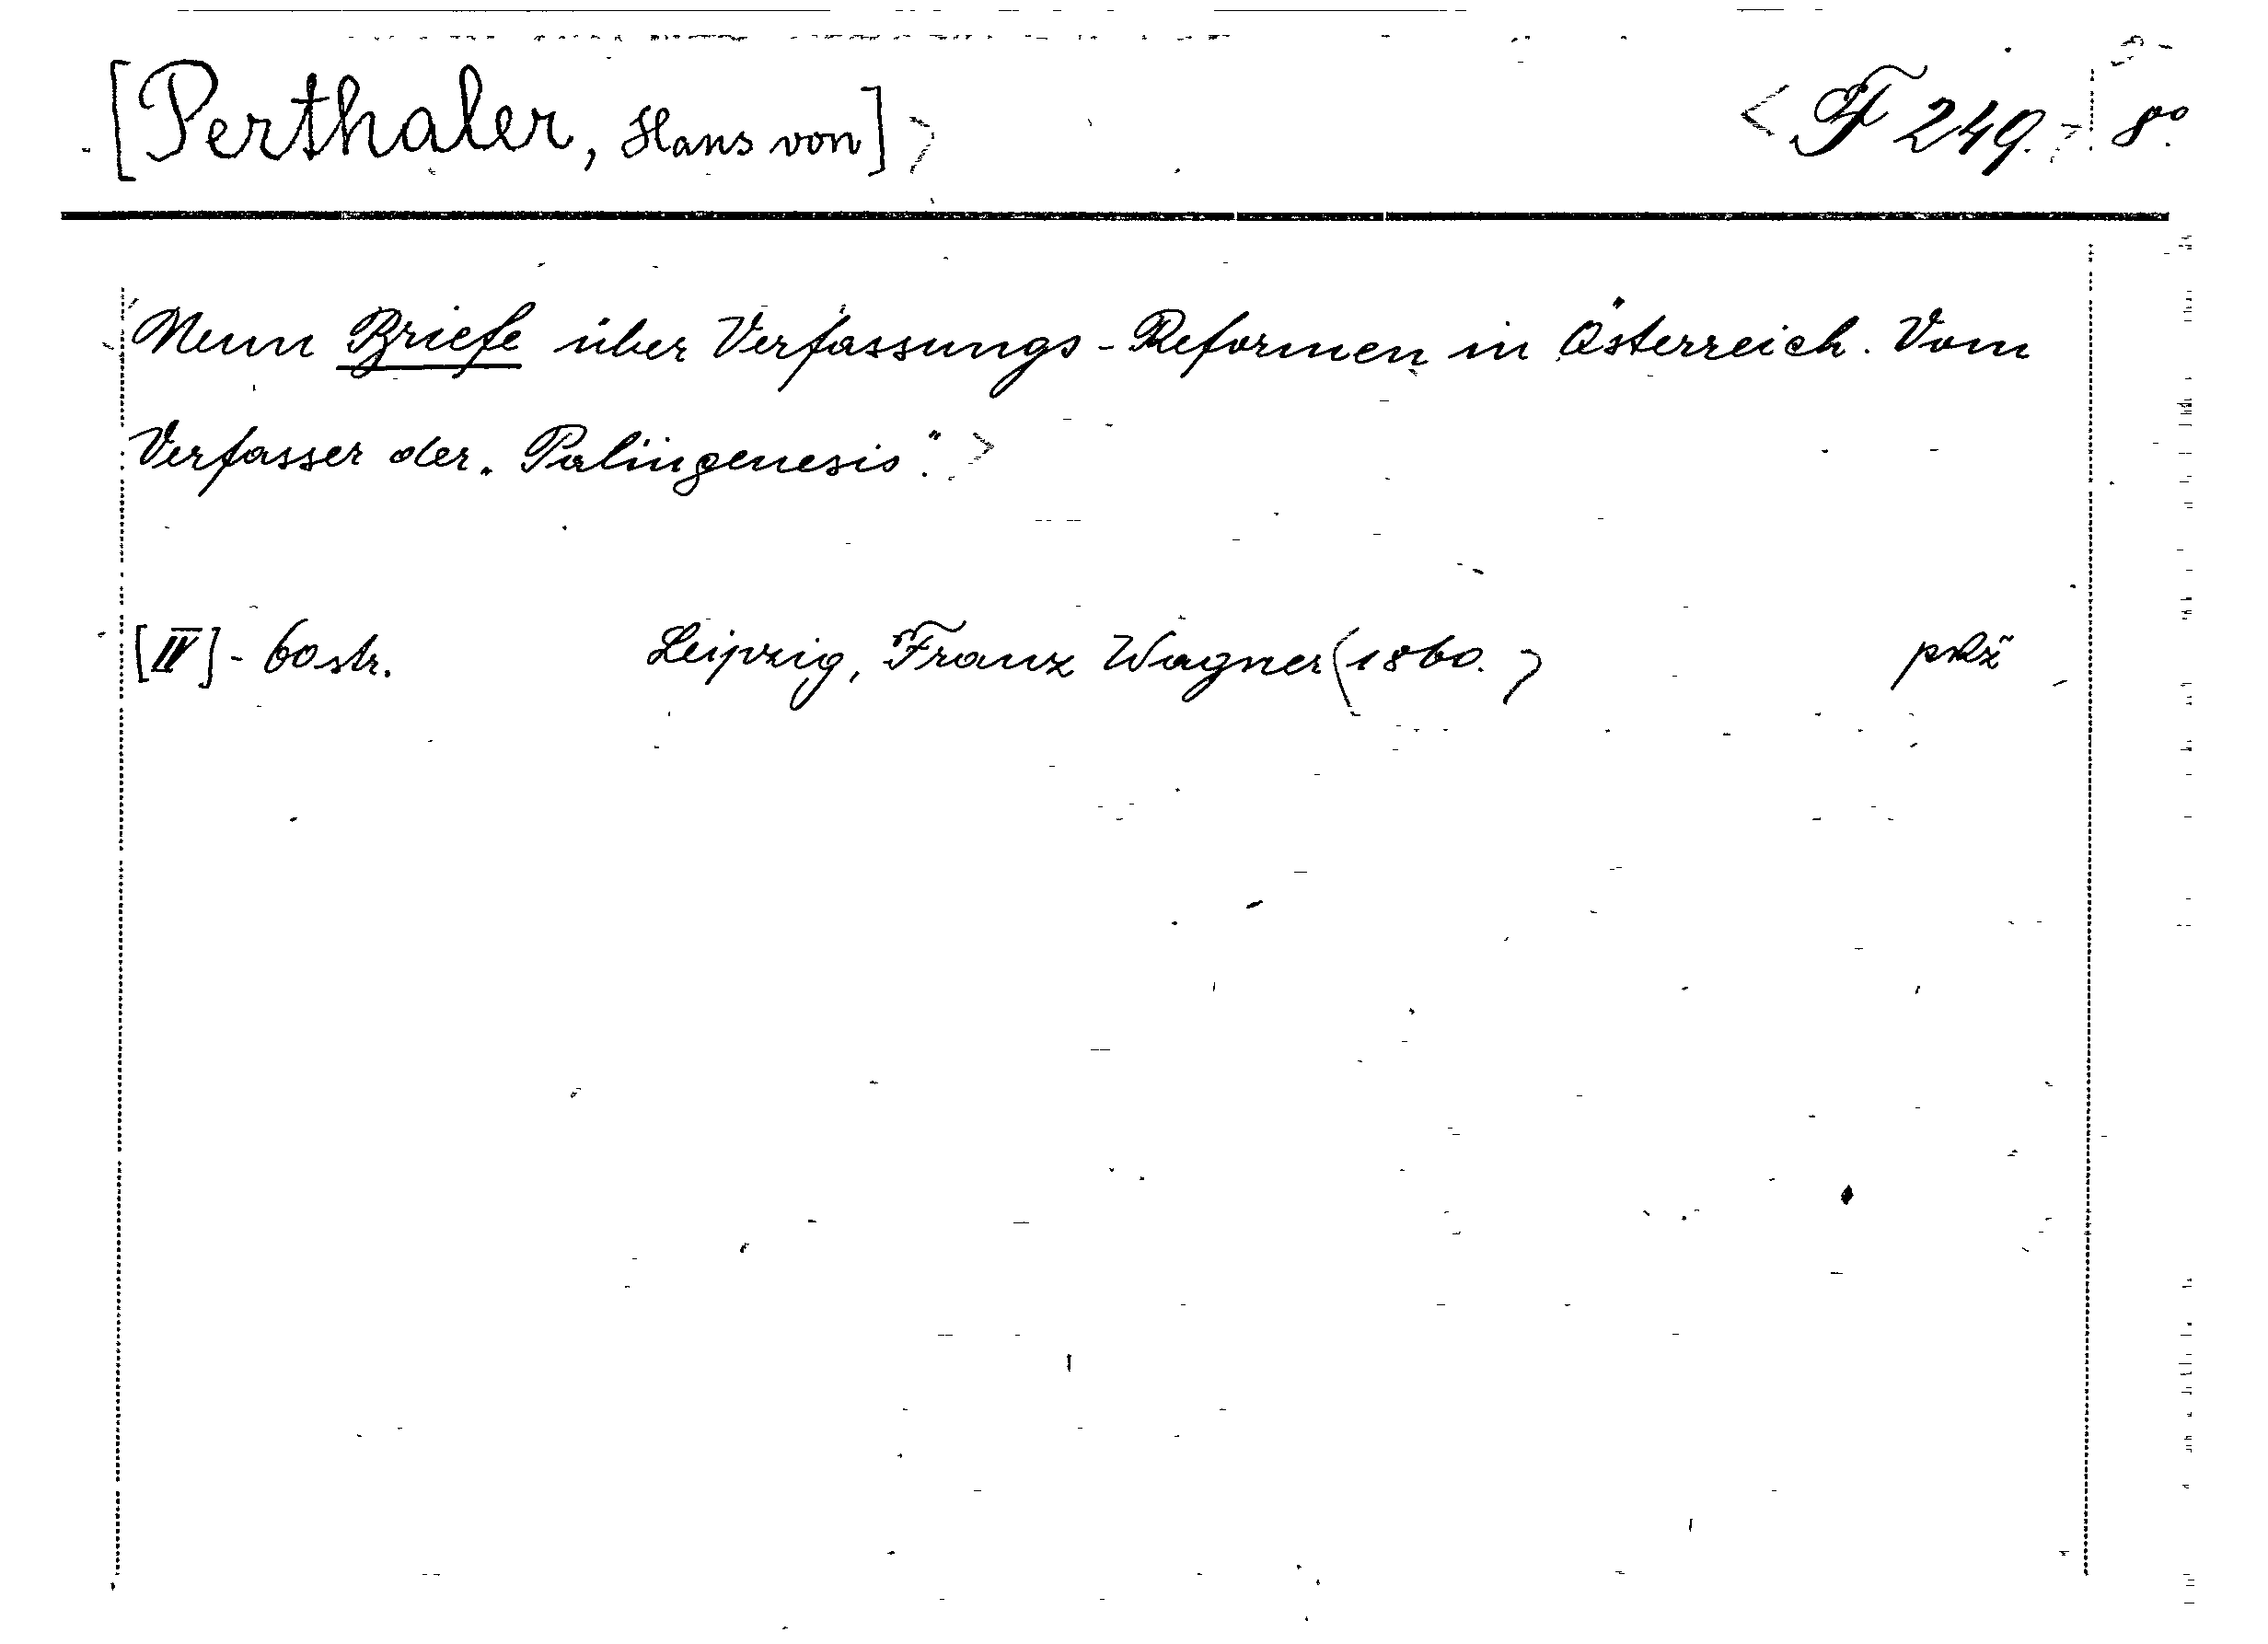 [Perthaler, Hans von] > < F 249. > 8°.
Neun Briefe über Verfassungs-Reformen in Österreich. Vom
Verfasser der „Palingenesis". >
[IV] - 60 str. Leipzig, Franz Wagner (1860.)